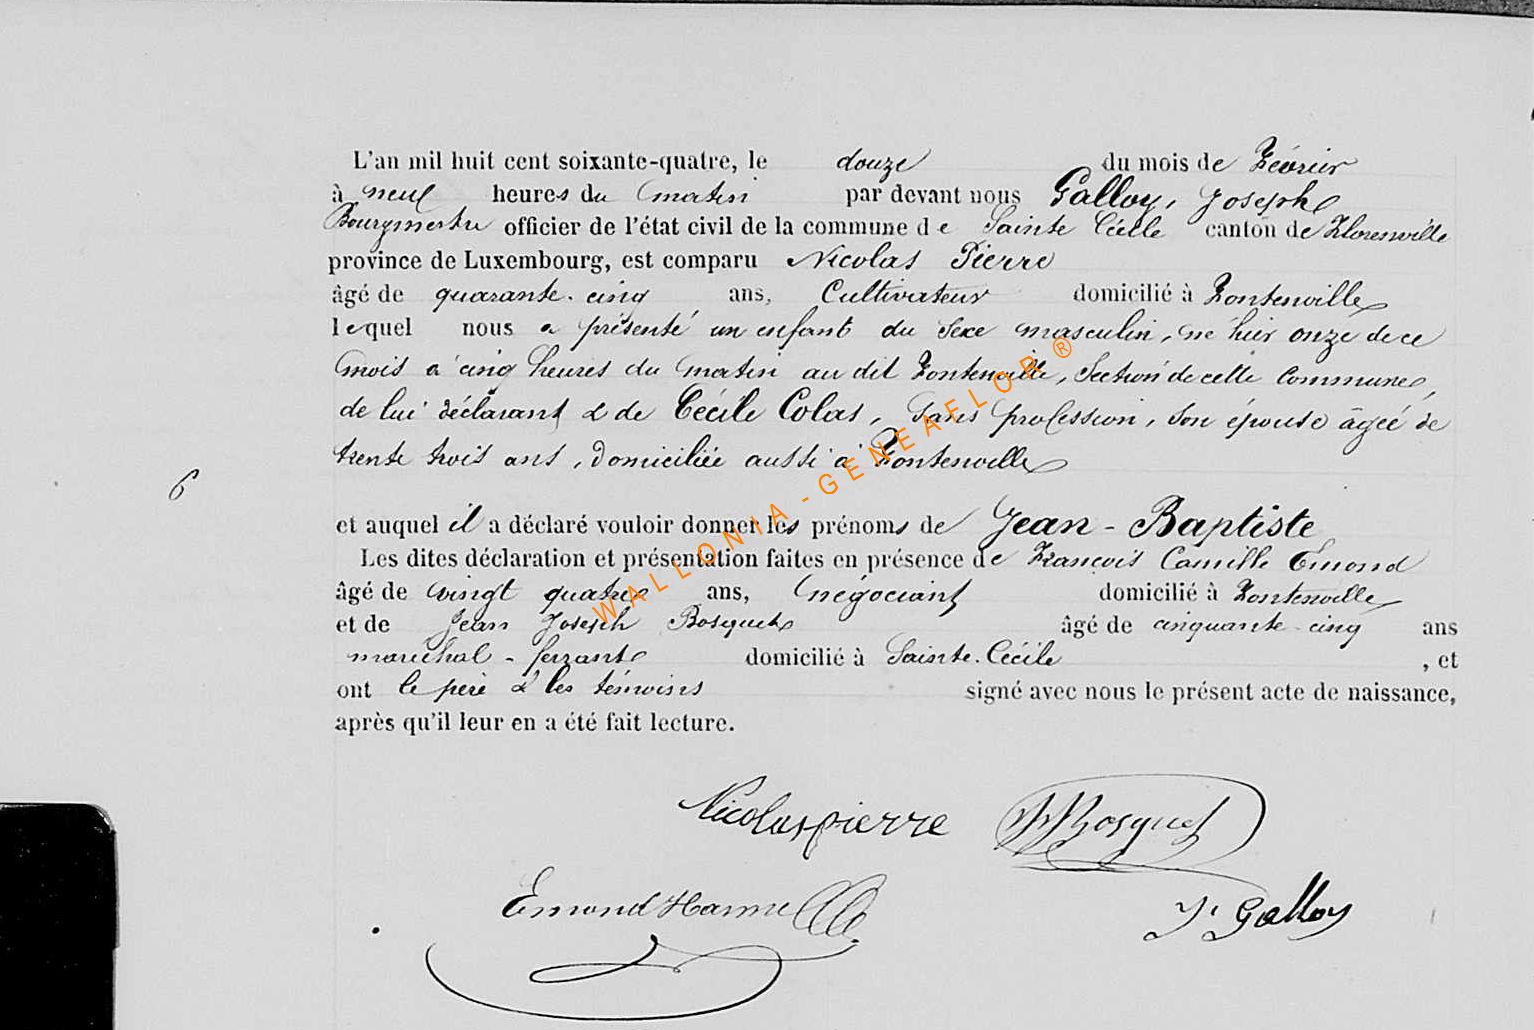 L'an mil huit cent soixante-quatre, le douze du mois de Février
à neuf heures du matin par devant nous Galloy, Joseph
Bourgmestre officier de l'état civil de la commune de Sainte Cécile canton de Florenville
province de Luxembourg, est comparu Nicolas Pierre
âgé de quarante-cinq ans, Cultivateur domicilié à Fontenoille
lequel nous a présenté un enfant du sexe masculin, né hier onze de ce
mois à cinq heures du matin au dit Fontenoille, Section de cette Commune,
de lui déclarant & de Cécile Colas, sans profession, son épouse âgée de
trente trois ans, domiciliée aussi à Fontenoille
6
et auquel il a déclaré vouloir donner les prénoms de Jean-Baptiste
Les dites déclaration et présentation faites en présence de François Camille Emond
âgé de vingt quatre ans, négociant domicilié à Fontenoille
et de Jean Joseph Bosquet âgé de cinquante-cinq ans
maréchal-ferrant domicilié à Sainte-Cécile , et
ont le père & les témoins signé avec nous le présent acte de naissance,
après qu'il leur en a été fait lecture.
Nicolas pierre JJ Bosquet
Emond J. Galloy
WALLONIA-GENEAFLOR®